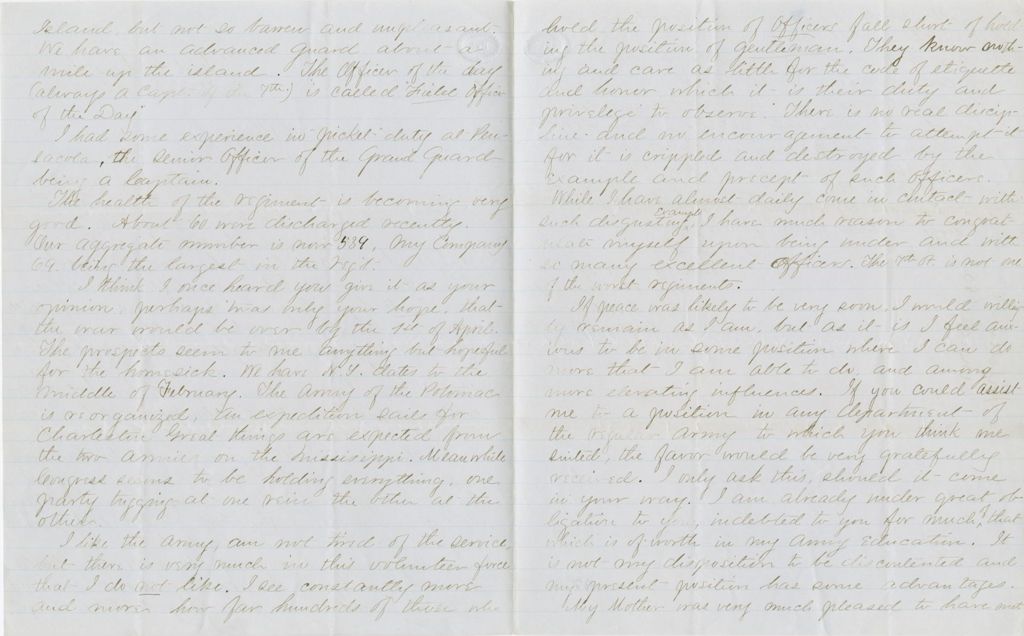 Island, but not so barren and unpleasant.
We have an advanced guard about a
mile up the island. The Officer of the day
(always a Capt. of the 7th.) is called Field Officer
of the Day.
I had some experience in picket duty at Pen-
sacola, the senior Officer of the Grand Guard
being a Captain.
The health of the regiment is becoming very
good. About 60 were discharged recently.
Our aggregate number is now 589, my Company
69. being the largest in the Regt.
I think I once heard you give it as your
opinion, perhaps 'twas only your hope, that
the war would be over by the 1st of April.
The prospects seem to me anything but hopeful
for the homesick. We have N.Y. dates to the
middle of February. The Army of the Potomac
is reorganized. An expedition sails for
Charleston. Great things are expected from
the two armies on the Mississippi. Meanwhile
Congress seems to be holding everything, one
party tugging at one rein the other at the
other.
I like the Army, am not tired of the service,
but there is very much in this volunteer force
that I do not like. I see constantly more
and more how far hundreds of those who
hold the position of Officers fall short of hold-
ing the position of gentleman. They know noth-
ing and care as little for the code of etiquette
and honor which it is their duty and
privilege to observe. There is no real discip-
line and no encouragement to attempt it
for it is crippled and destroyed by the
example and precept of such Officers.
While I have almost daily come in contact with
such disgusting examples, I have much reason to congrat-
ulate myself upon being under and with
so many excellent Officers. The 7th Vt. is not one
of the worst regiments.
If peace was likely to be very soon, I would willing-
ly remain as I am, but as it is I feel anx-
ious to be in some position where I can do
more that I am able to do, and among
more elevating influences. If you could assist
me to a position in any department of
the regular army to which you think me
suited, the favor would be very gratefully
received. I only ask this, should it come
in your way. I am already under great ob-
ligation to you, indebted to you for much, that
which is of worth in my army education. It
is not my disposition to be discontented and
my present position has some advantages.
My Mother was very much pleased to have met